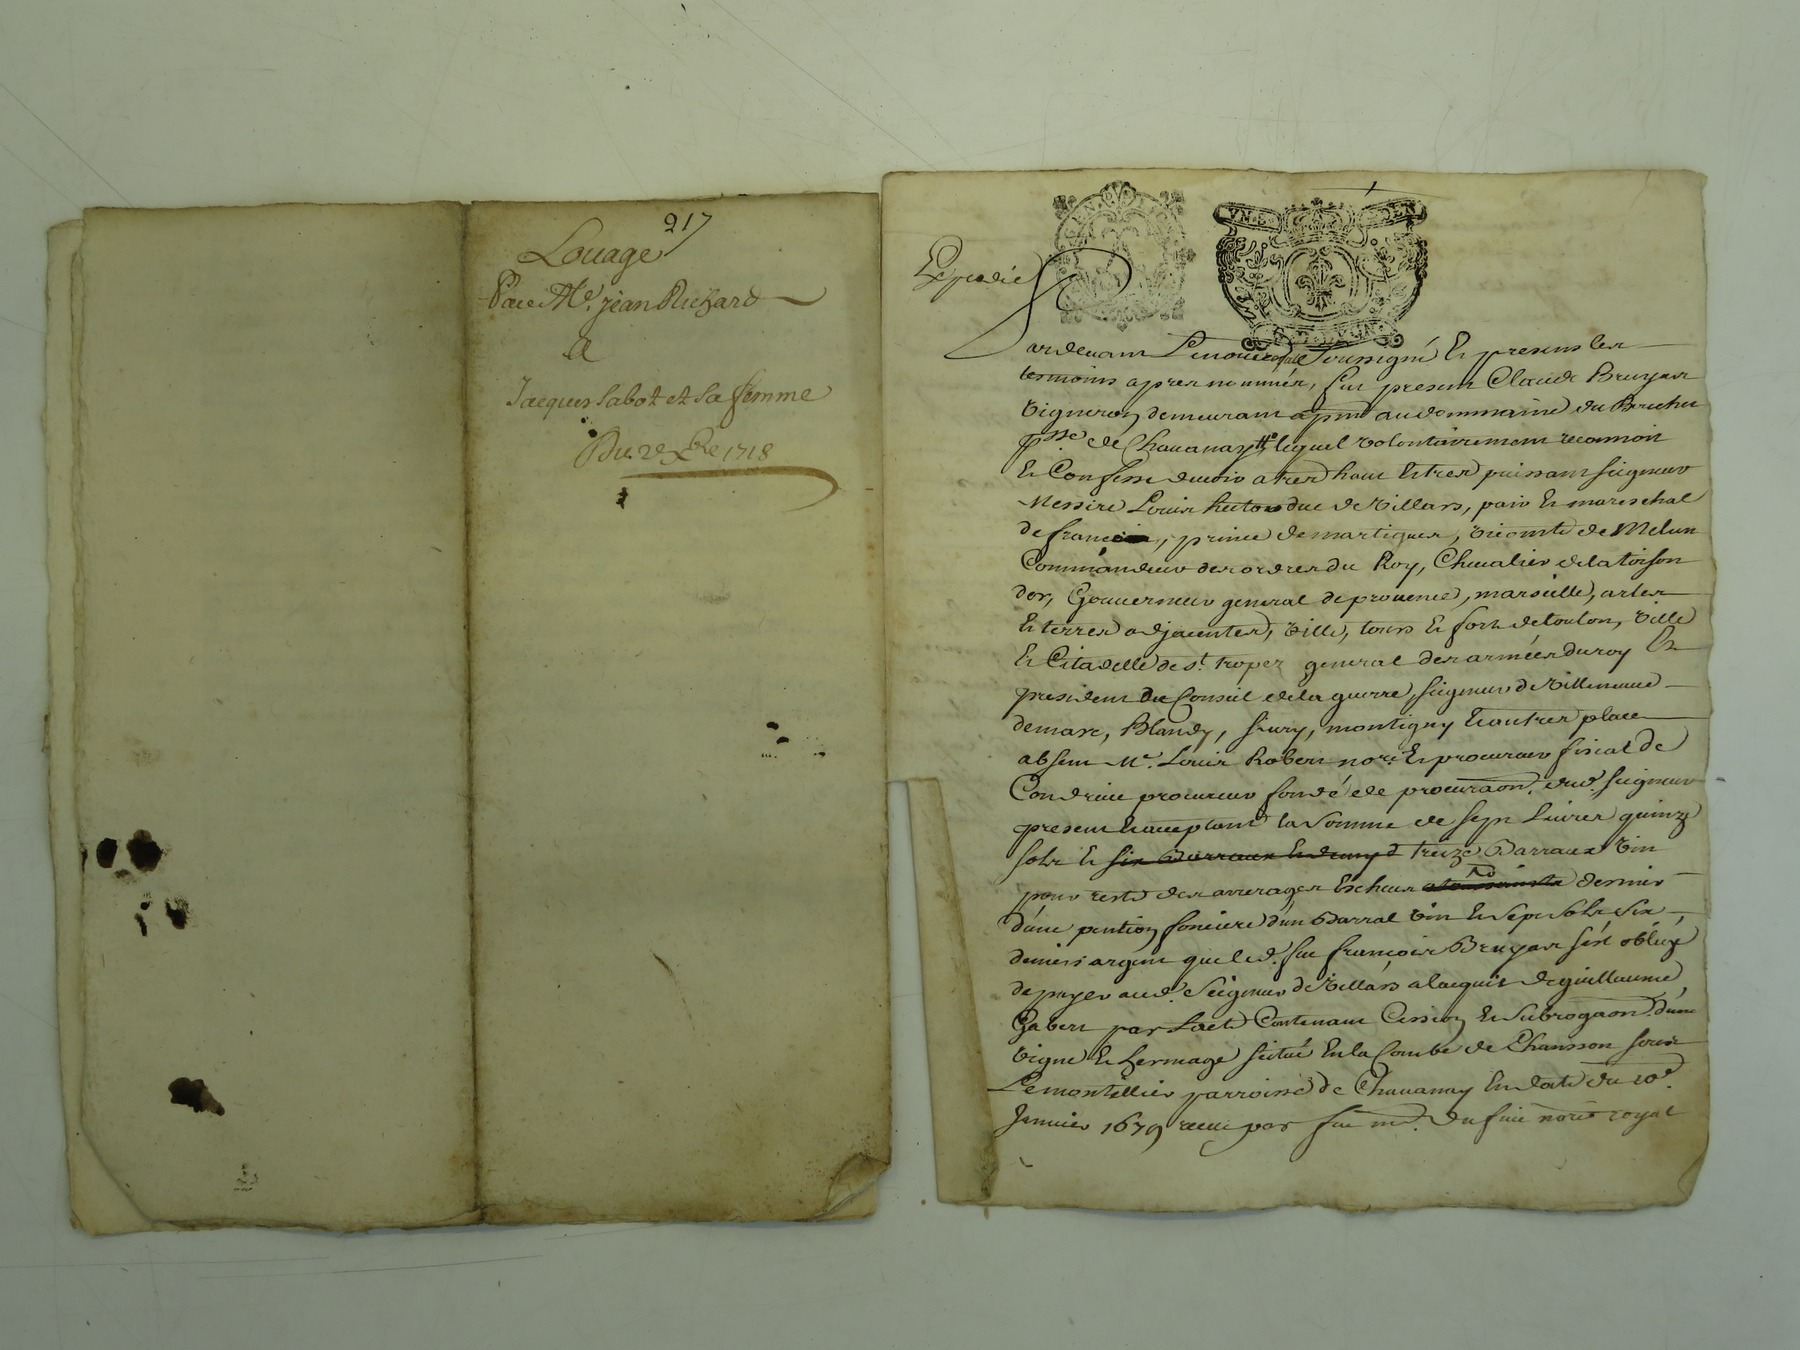 217
Louage
Par Me. jean Richard
A
Jacques Sabot et sa femme
Du 2e Xbre 1718
Expedié
VN.S DEN
Pardevant Le notaire royal Soussigné Et presens les
tesmoins apres nommés, fut present Claude Bruyas
vigneron demeurant au dommaine du
psse. de Chauanay lequel volontairement reconnoit
Et Confesse devoir a tres haut Et tres puissant seigneur
Messire Louis hector duc de Villars, pair Et mareschal
de france, prince de martigues, vicomte de Melun
Commandeur des ordres du Roy, Chevalier de la toison
dor, Gouverneur general de provence, marseille, arles
Et terres adjacentes, ville, tours Et fort de toulon, ville
Et Citadelle de st. tropez general des armées du roy Et
president du Conseil de la guerre, seigneur de Villeneuve
demarc, Blandy, siury, montigny Et autres places
absent Mr. Louis Robert nore. Et procureur fiscal de
Condrieu procureur fondé de procuraon. dud. seigneur
present Et acceptant la Somme de sept Livres quinze
sols Et six Barraux Et demy treize Barraux vin
pour reste des arrerages Escheus dernier
d'une pention fonciere d'un Barral vin Et Sept Sols Six
deniers argent que led. feu francois Bruyas s'est obligé
de payer aud. Seigneur de Villars a lacquit de guillaume
Gabert par Lacte Contenant Cession Et Subrogaon. d'une
vigne Et hermage scitué En la Combe de Chanson sous
Le montellier parroisse de Chauanay En date du 10e.
Janvier 1679 receu par feu me. du fuie nore. royal